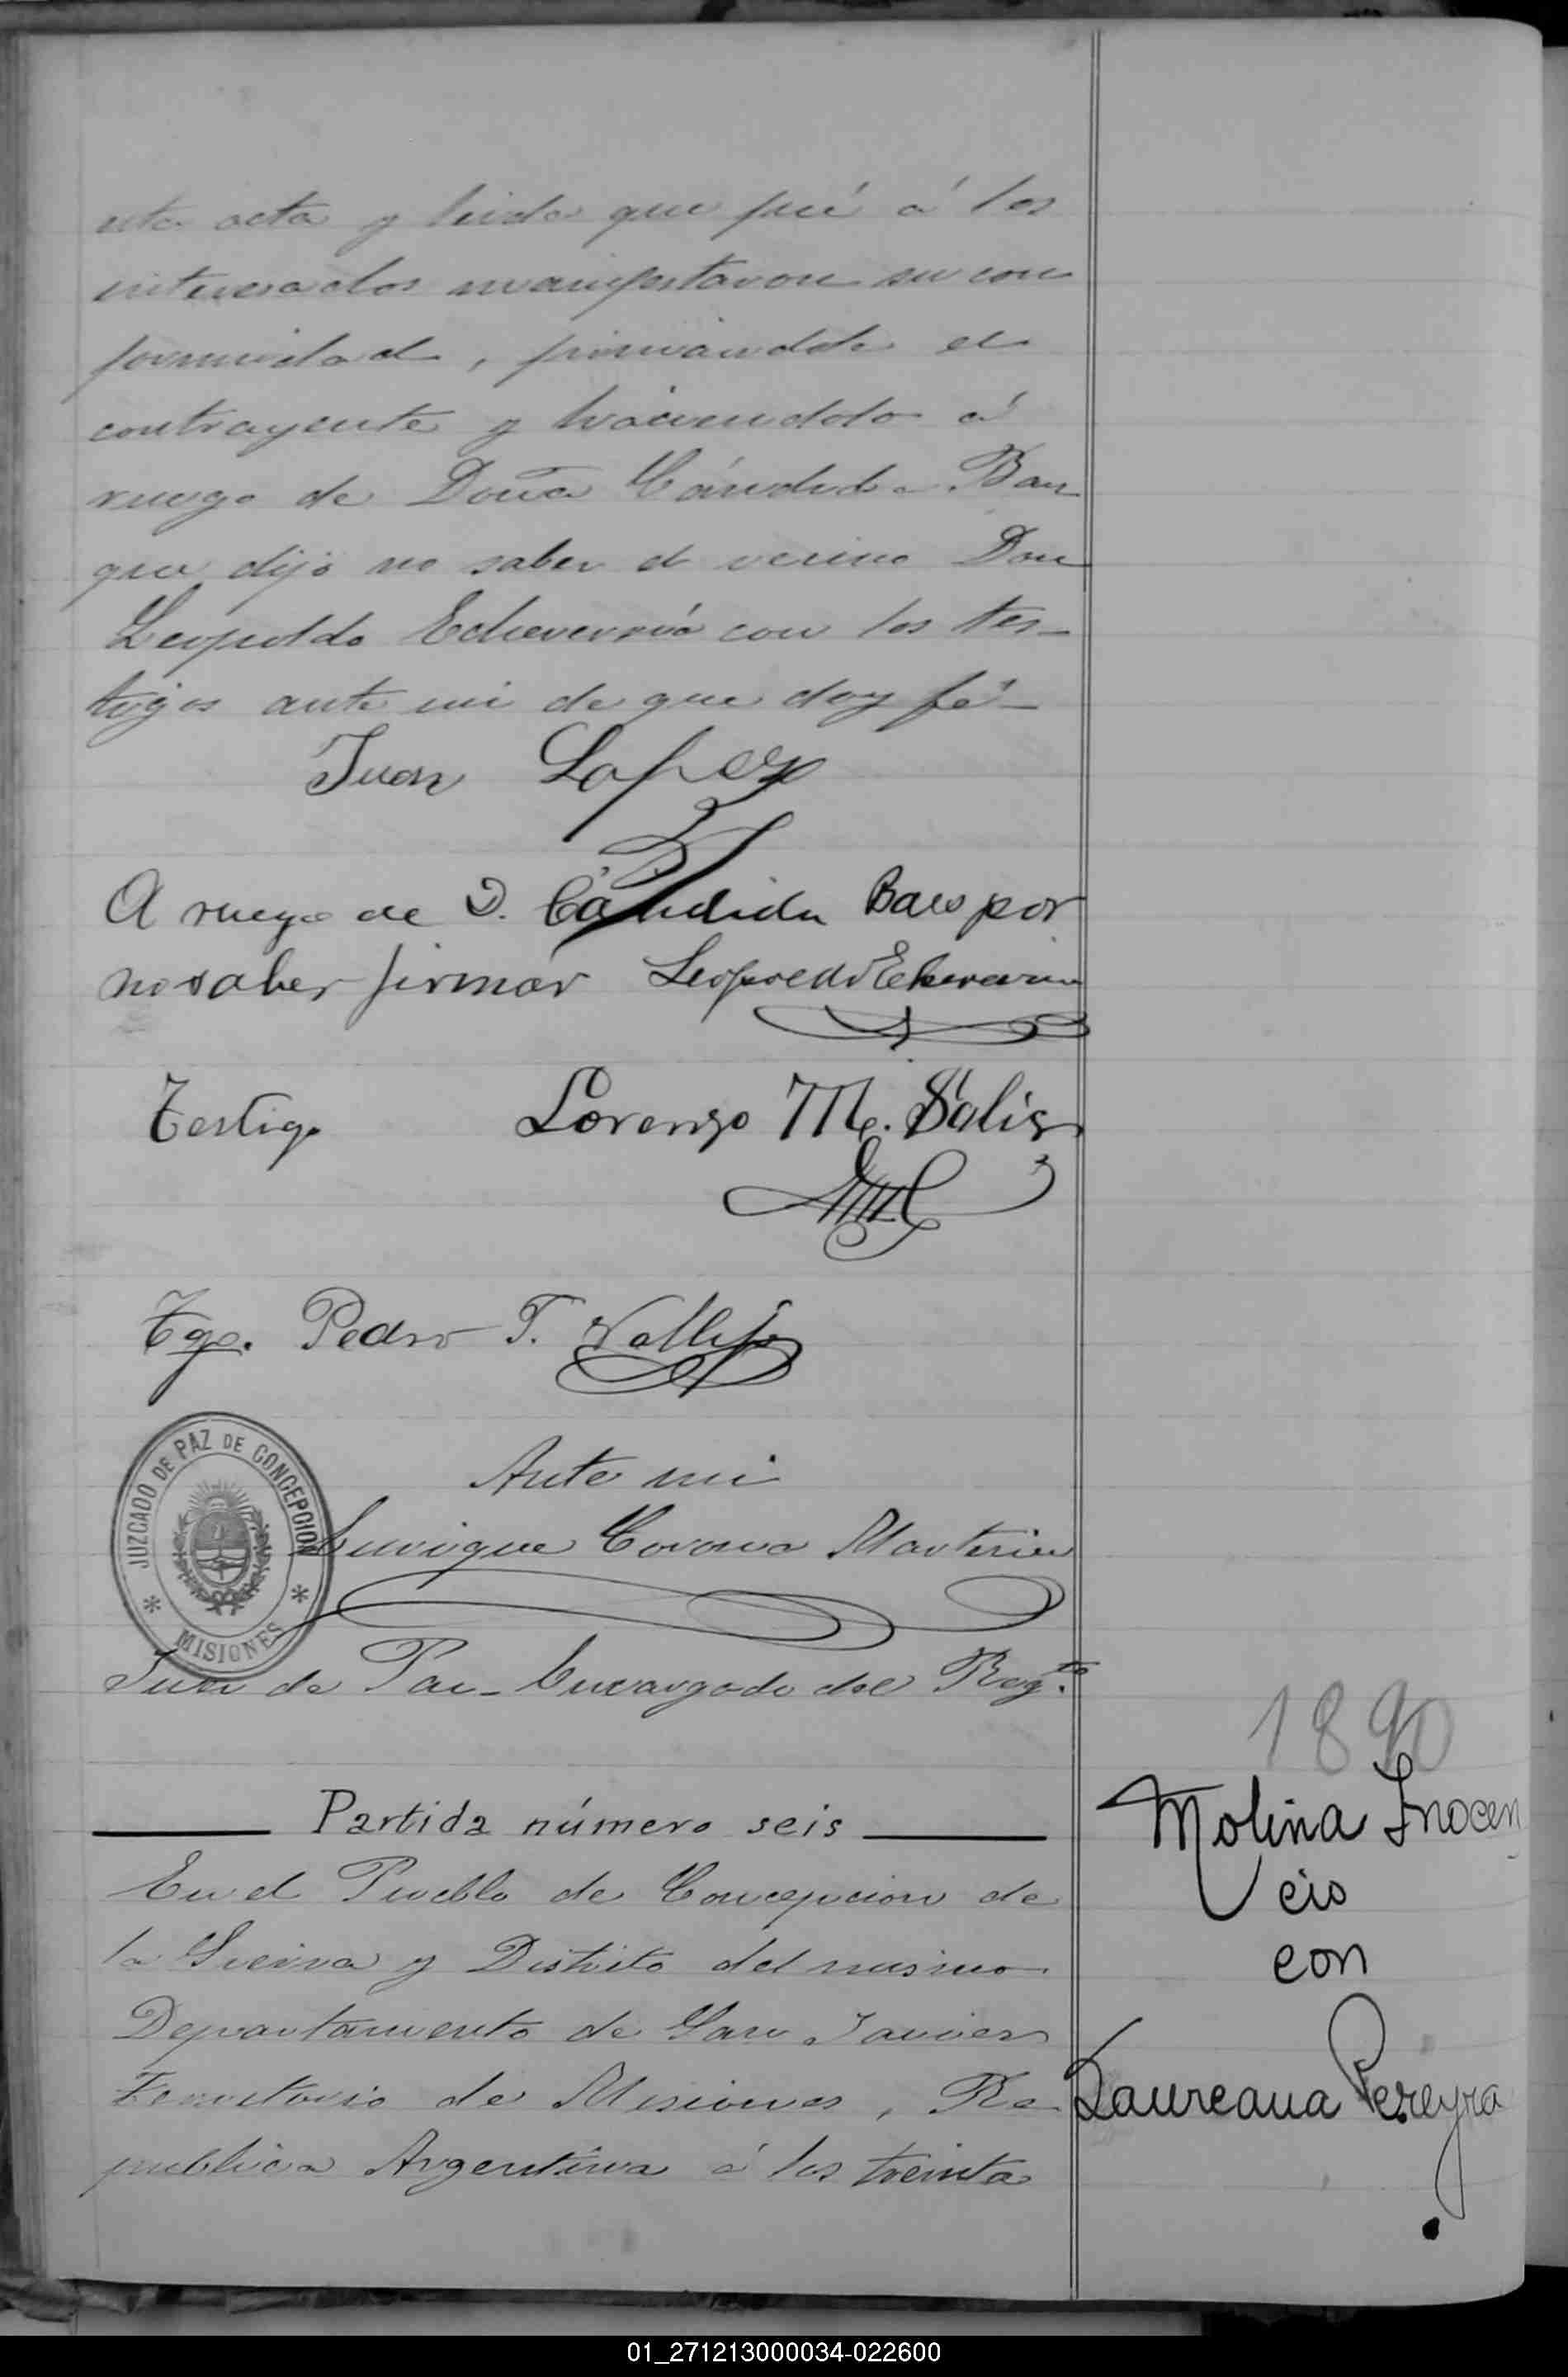 esta acta y leida que fué á los
interesados manifestaron su con
formidad, firmándola el
contrayente y haciendolo á
ruego de Doña Cándida Baez
que dijo no saber el vecino Don
Leopoldo Echeverría con los tes-
tigos ante mi de que doy fé-
Juan Lopez
A ruego de D. Cándida Baes por
no saber firmar Leopoldo Echeverria
Testigo Lorenzo M. Solis
Tgo. Pedro T. Vallejo
JUZGADO DE PAZ DE CONCEPCION
MISIONES
Ante mi
Enrique Corona Martinez
Juez de Paz-Encargado del Regto.
1890
Partida número seis
Molina Inocen
En el Pueblo de Concepcion de
cio
la Sierra y Distrito del mismo
con
Departamento de San Javier
Territorio de Misiones, Re
Laureana Pereyra
publica Argentina á los treinta
01_271213000034-022600